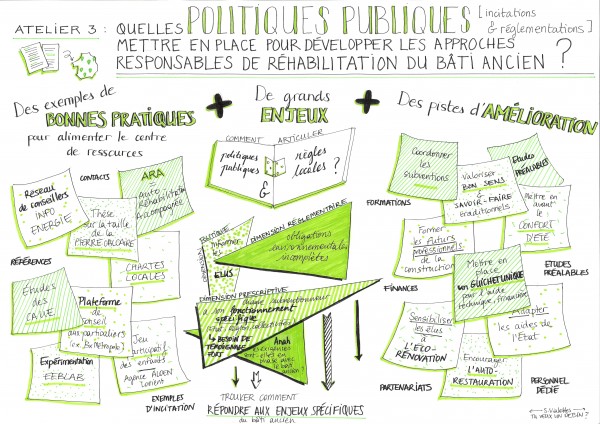 ATELIER 3 : QUELLES POLITIQUES PUBLIQUES [incitations
& réglementations]
METTRE EN PLACE POUR DÉVELOPPER LES APPROCHES
RESPONSABLES DE RÉHABILITATION DU BÂTI ANCIEN ?
Des exemples de
BONNES PRATIQUES
pour alimenter le centre
de ressources
+
De grands
ENJEUX
+
Des pistes d'AMÉLIORATION
CONTACTS
Réseau
de conseillers
INFO
ENERGIE
ARA
Auto
Réhabilitation
Accompagnée
Thèse
sur la taille
de la
PIERRE CALCAIRE
RÉFÉRENCES
CHARTES
LOCALES
Études
des
CAUE
Plateforme
de
Conseil
aux particuliers
Expérimentation
FEEBLAB
Jeu
participatif
des
enfants
Agence ALOEN
Lorient
EXEMPLES D'INCITATION
COMMENT ARTICULER
politiques
publiques
&
règles
locales ?
POLITIQUE
informer
les
ELUS
DIMENSION RÉGLEMENTAIRE
obligations
environnementales
incomplètes
DIMENSION PRESCRIPTIVE
chaque
a son fonctionnement
spécifique
+ BESOIN DE
TEMOIGNAGE
FORT
Anah
sont-elles en
phase avec
le bâti
ancien ?
TROUVER COMMENT
RÉPONDRE AUX ENJEUX SPÉCIFIQUES
du bâti ancien
Coordonner
les
subventions
Etudes
PRÉALABLES
Valoriser
BON SENS
SAVOIR-FAIRE
traditionnels
FORMATIONS
Mettre en
avant
le
CONFORT
D'ÉTÉ
Former
les futurs
professionnels
de la
construction
Mettre en
place
un GUICHET UNIQUE
pour l'aide
technique, financière
ÉTUDES
PRÉALABLES
FINANCES
Sensibiliser
les élus
à
L'ÉCO-
RÉNOVATION
Adapter
les aides de
l'Etat
Encourager
L'AUTO-
RESTAURATION
PARTENARIATS
PERSONNEL
DÉDIÉ
TU VEUX UN DESSIN ?